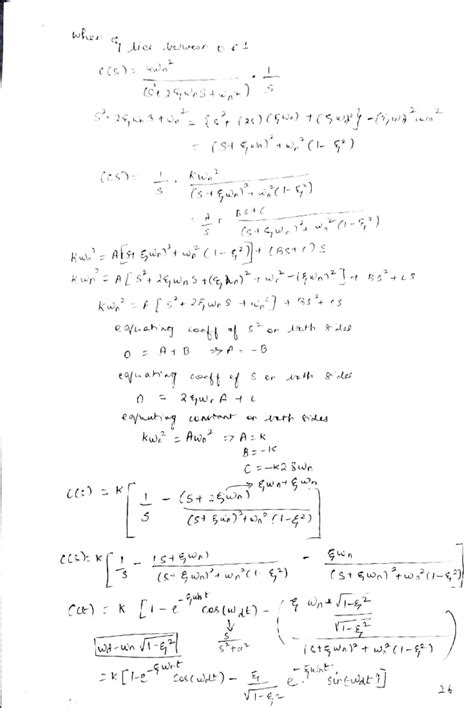 when ξ lies between 0 & 1
C(S) = kωn² / (S² + 2ξωnS + ωn²) · 1/S
S² + 2ξωnS + ωn² = {S² + (2S)(ξωn) + (ξωn)²} - (ξωn)² + ωn²
= (S + ξωn)² + ωn²(1 - ξ²)
C(S) = 1/S · Kωn² / ((S + ξωn)² + ωn²(1 - ξ²))
= A/S + BS + C / ((S + ξωn)² + ωn²(1 - ξ²))
Kωn² = A[(S + ξωn)² + ωn²(1 - ξ²)] + (BS + C)S
Kωn² = A[S² + 2ξωnS + (ξωn)² + ωn² - (ξωn)²] + BS² + CS
Kωn² = A[S² + 2ξωnS + ωn²] + BS² + CS
equating coeff of S² on both sides
0 = A + B => A = -B
equating coeff of S on both sides
0 = 2ξωnA + C
equating constant on both sides
Kωn² = Aωn² => A = K
B = -K
C = -K2ξωn
→ ξωn + ξωn
C(S) = K[1/S - (S + 2ξωn) / ((S + ξωn)² + ωn²(1 - ξ²))]
C(S) = K[1/S - (S + ξωn) / ((S + ξωn)² + ωn²(1 - ξ²)) - ξωn / ((S + ξωn)² + ωn²(1 - ξ²))
C(t) = K[1 - e^-ξωnt cos(ωdt) - (ξ ωn × √1-ξ² / √1-ξ² / (S + ξωn)² + ωn²(1 - ξ²)
↓ S / S² + a²
ωd = ωn √1-ξ²
= K[1 - e^-ξωnt cos(ωdt) - ξ/√1-ξ² e^-ξωnt sin(ωdt)]
26